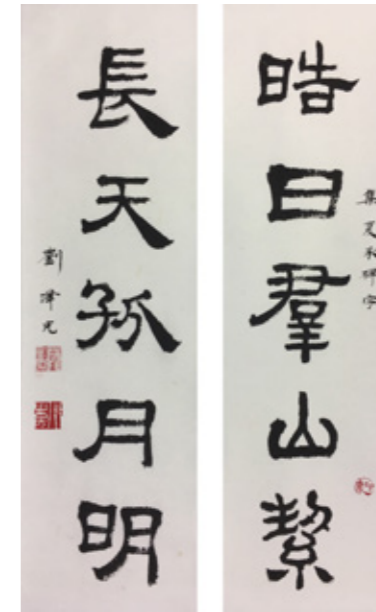 皓日羣山絜
集夏承碑字
長天孤月明
劉澤光